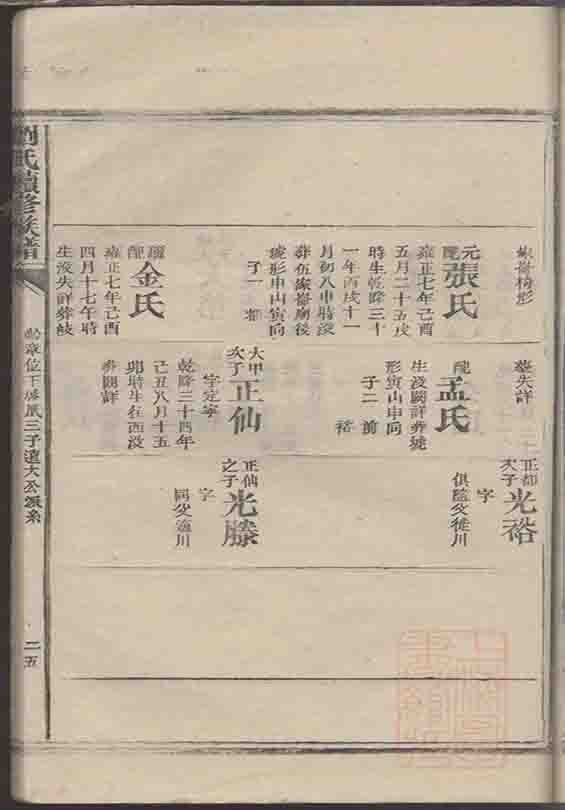 元配張氏
雍正七年己酉
五月二十五戌
時生乾隆三十
一年丙戌十一
月初八申時没
廟後
形申山寅向
子一 都
續配金氏
雍正七年己酉
四月十七午時
生没失詳葬岐
葬失詳
配孟氏
生没闕詳葬
形寅山申向
子二 前
裕
大甲次子正仙
字定寧
乾隆三十四年
己丑八月十五
卯時生在西没
葬闕詳
正都次子光裕
字
俱隨父徙川
正仙之子光滕
字
同父適川
劉氏續修族譜
三子遠大公派系
二五